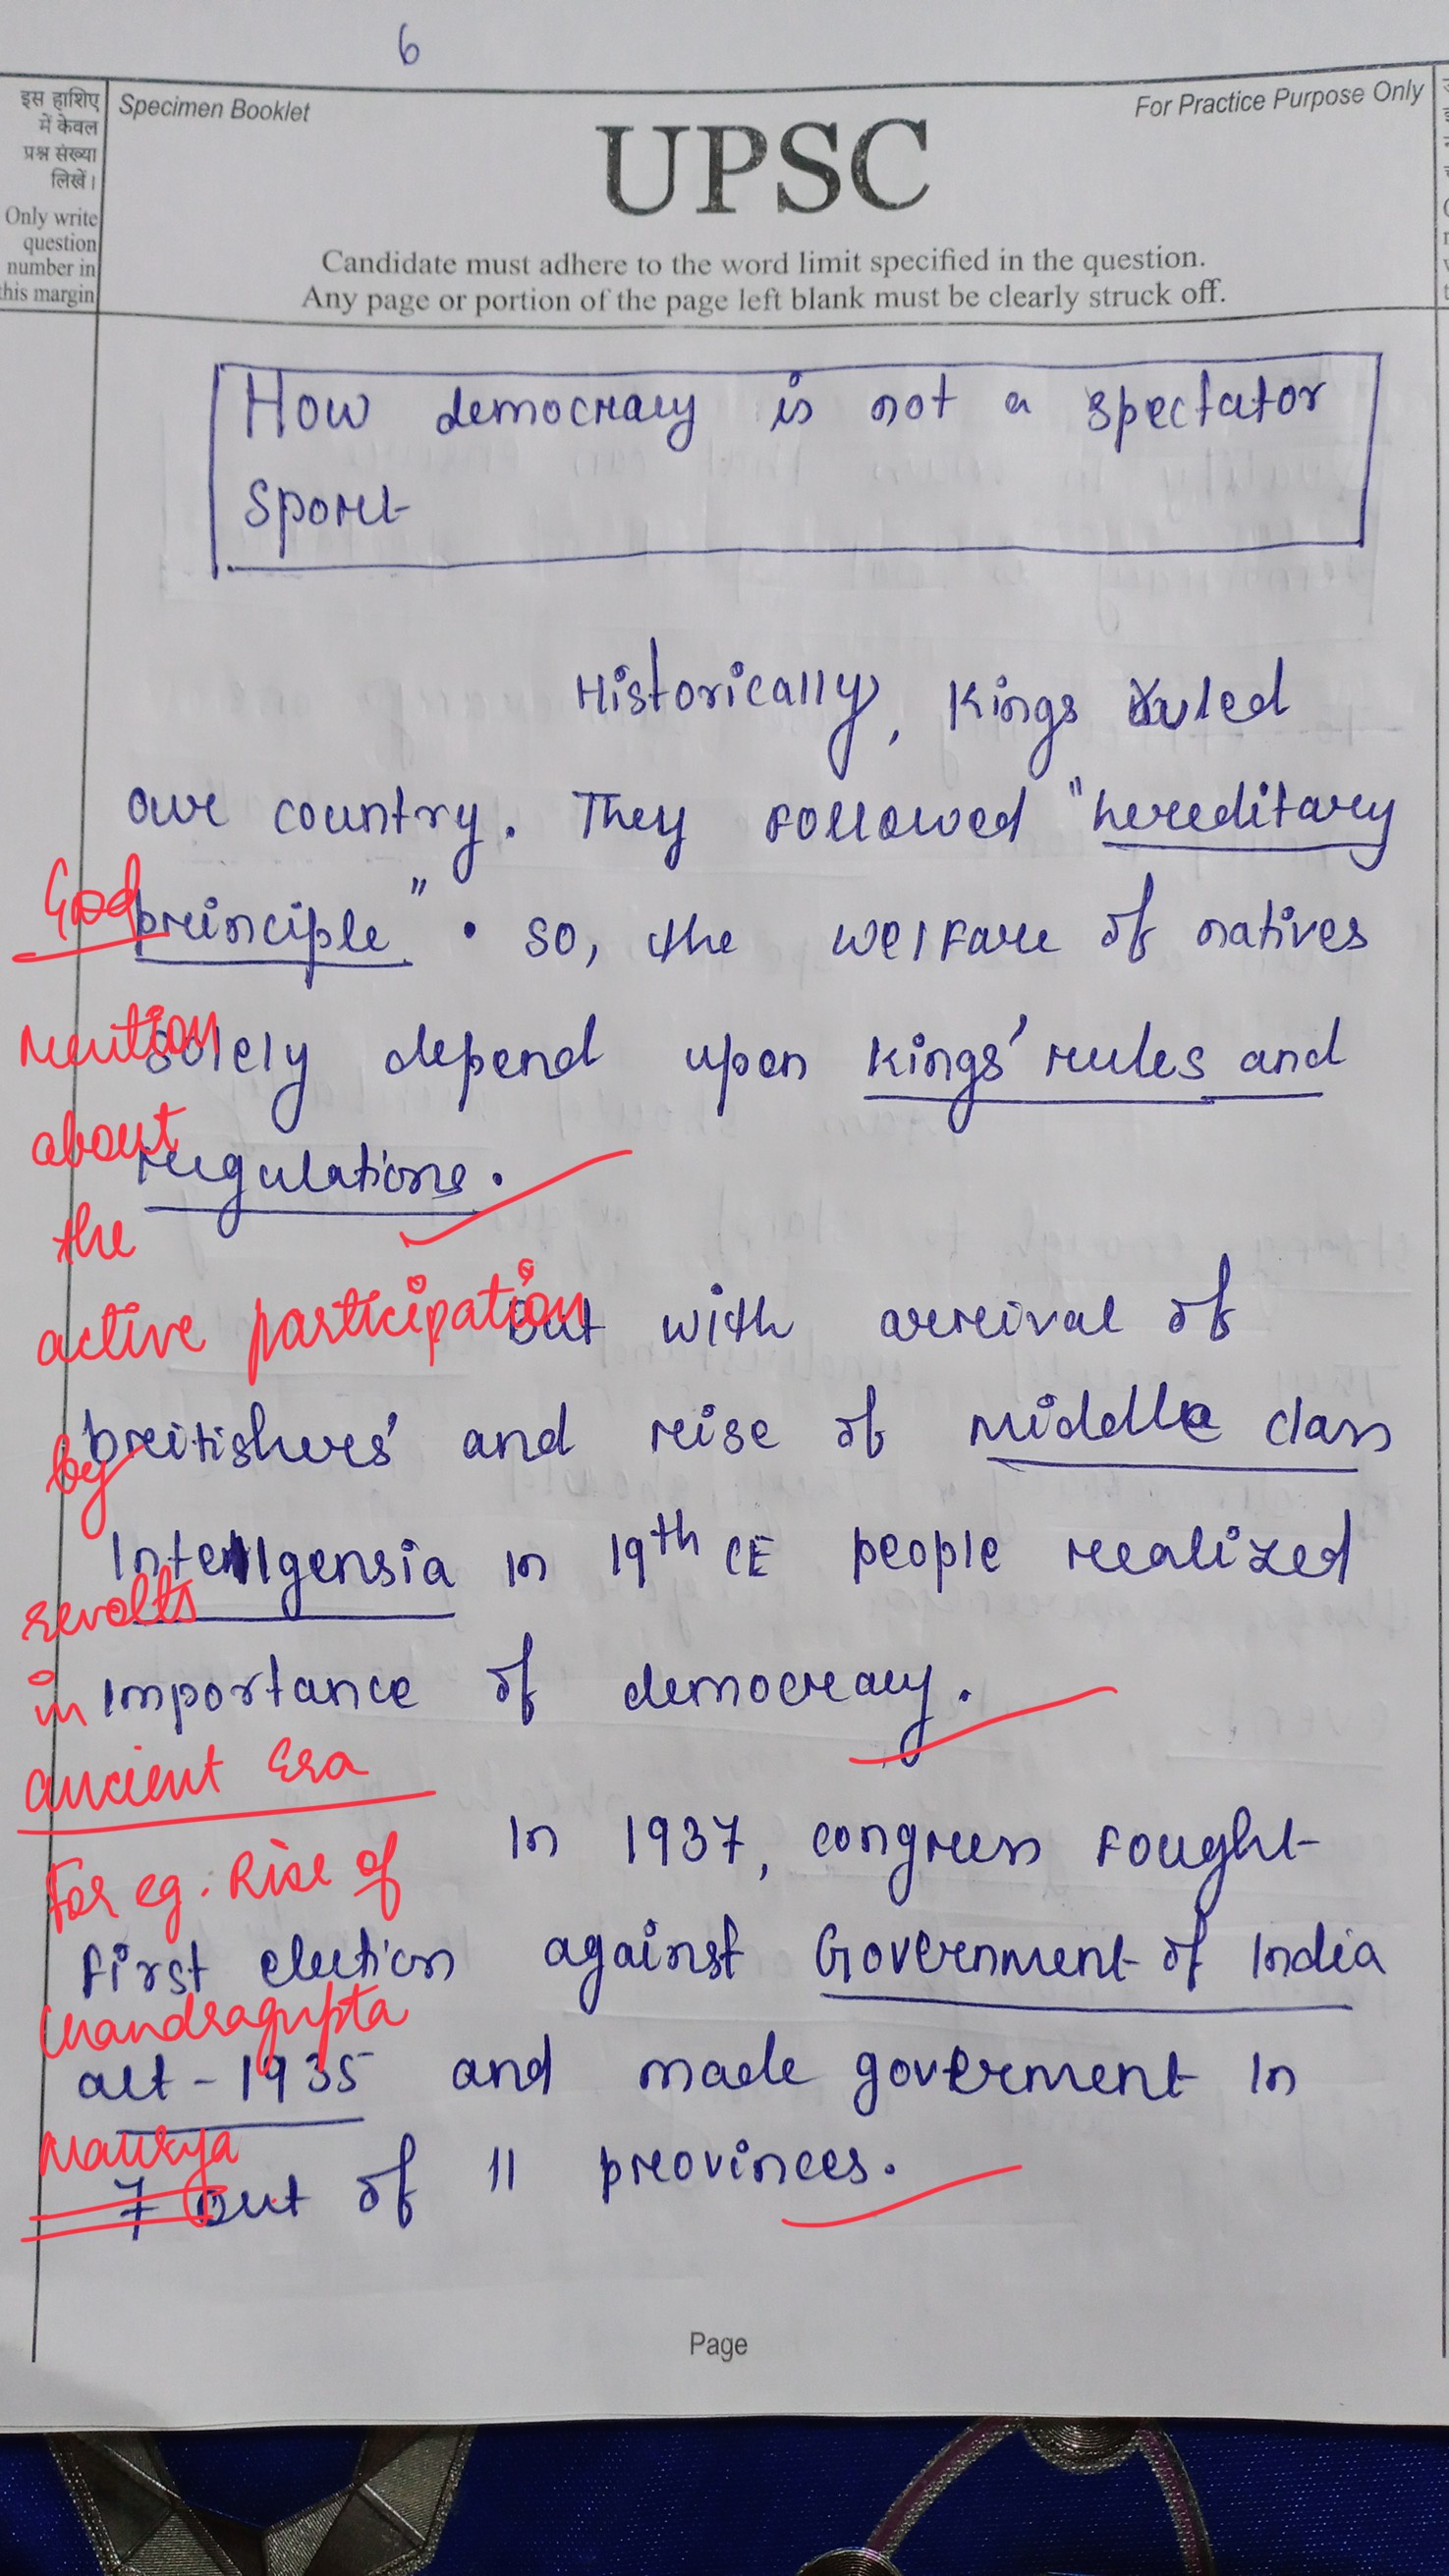 6
इस हाशिए
में केवल
प्रश्न संख्या
लिखें।
Only write
question
number in
this margin
Specimen Booklet
For Practice Purpose Only
UPSC
Candidate must adhere to the word limit specified in the question.
Any page or portion of the page left blank must be clearly struck off.
How democracy is not a spectator
sport
Historically, Kings ruled
our country. They followed "hereditary
principle". So, the welfare of natives
solely depend upon Kings' rules and
regulations.
But with arrival of
britishers' and rise of middle class
Intelligensia in 19th CE people realized
importance of democracy.
In 1937, congress fought
first election against Government of India
act-1935 and made goverment in
7 out of 11 provinces.
God
mention
about
the
active participation
by
revolts
in
ancient Era
For eg. Rise of
Chandragupta
Maurya
Page